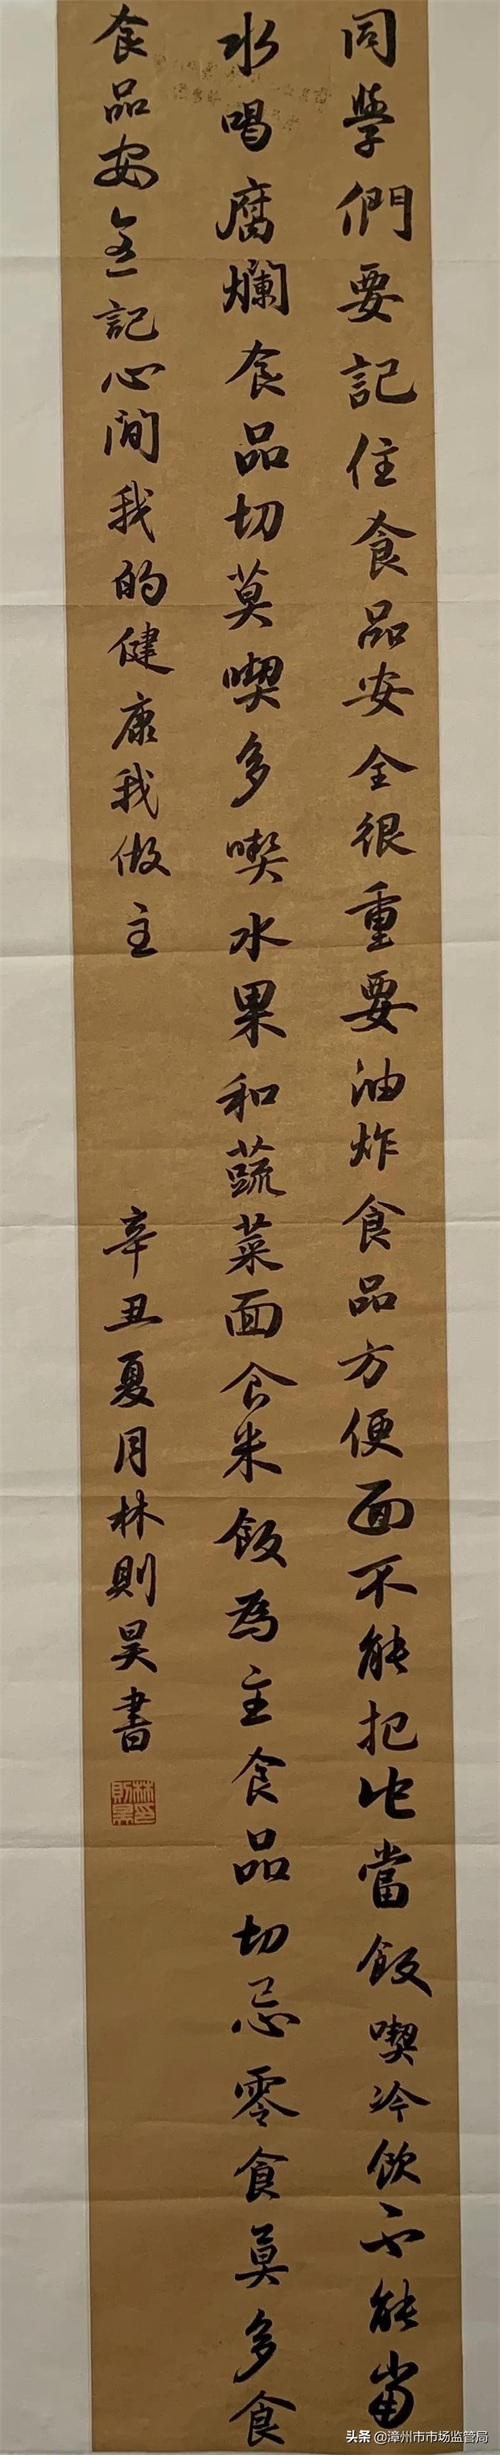 同學們要記住食品安全很重要油炸食品方便面不能把它當飯喫冷飲不能當
水喝腐爛食品切莫喫多喫水果和蔬菜面食米飯為主食品切忌零食莫多食
食品安全記心間我的健康我做主
辛丑夏月林則昊書
林則昊印
头条 @漳州市市场监管局